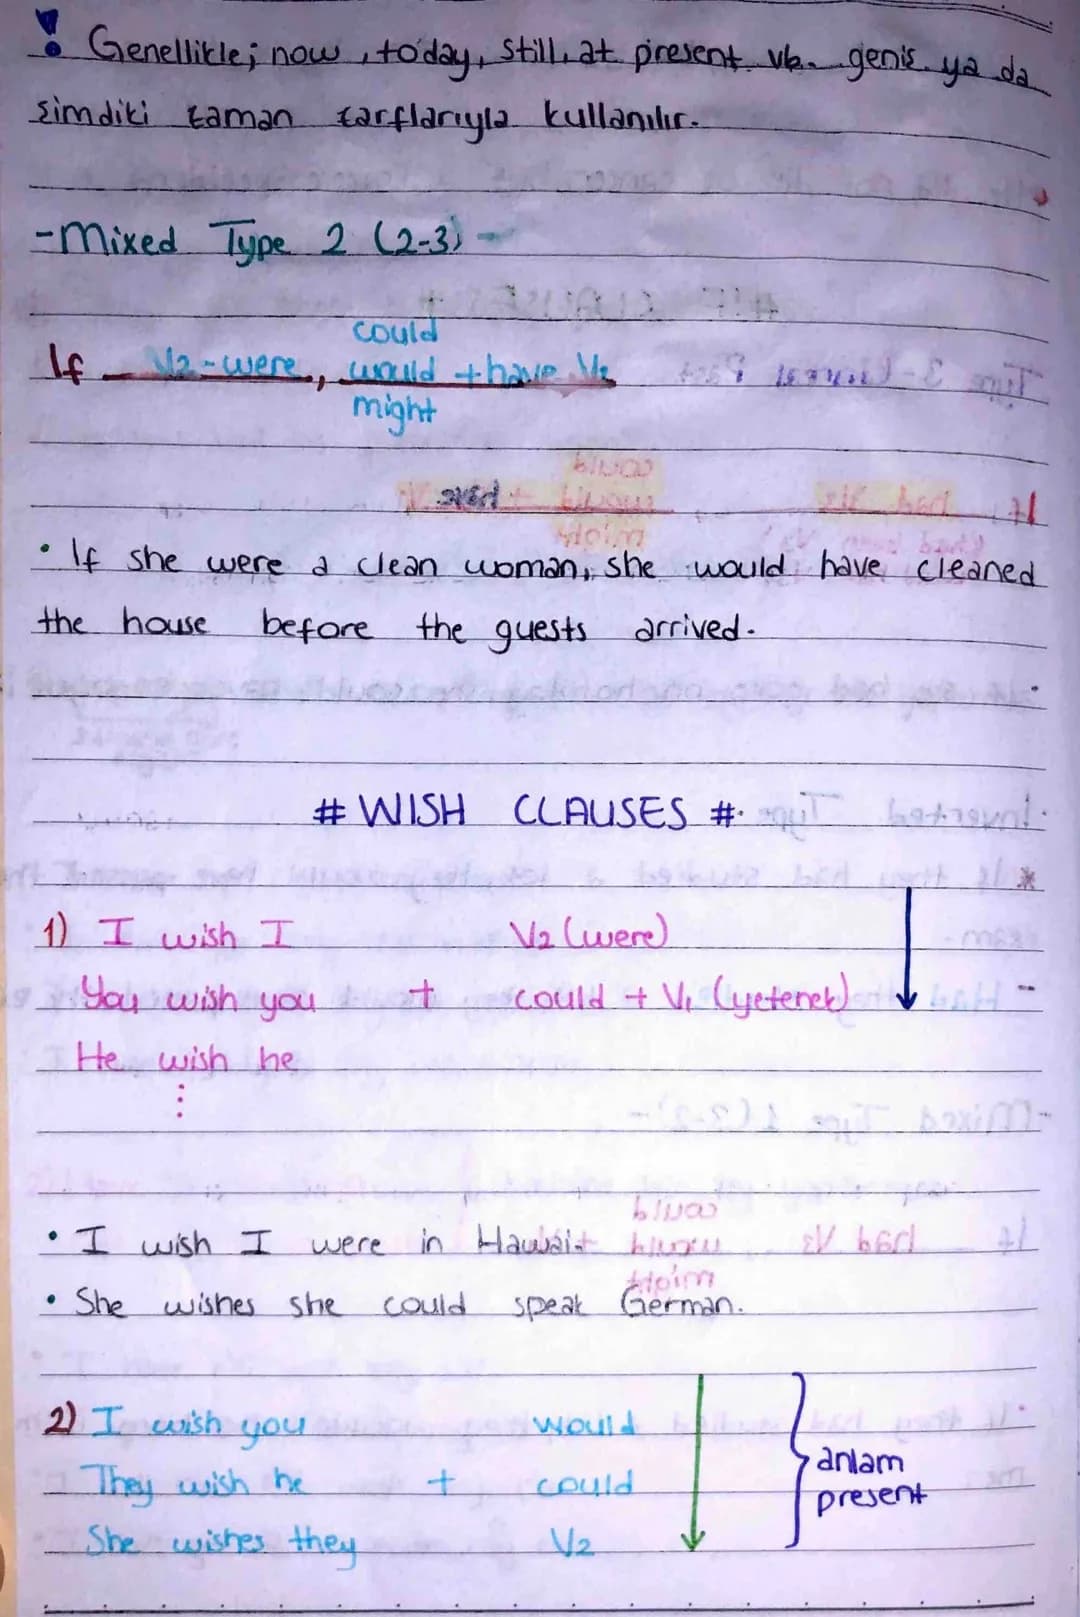 ! Genellikle; now, today, still, at present vb. geniş ya da
şimdiki zaman zarflarıyla kullanılır.
-Mixed Type 2 (2-3)-
could
If _ V2-were, would + have V3
might
• If she were a clean woman, she would have cleaned
the house before the guests arrived.
# WISH CLAUSES #
1) I wish I V2 (were)
You wish you + could + V1 (yetenek)
He wish he
⋮
• I wish I were in Hawaii
• She wishes she could speak German.
2) I wish you would
They wish he + could
She wishes they V2
anlam
present